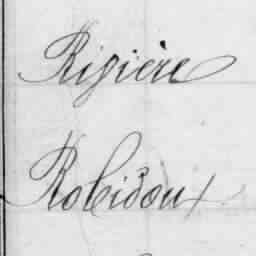 Rigière
Robidoux